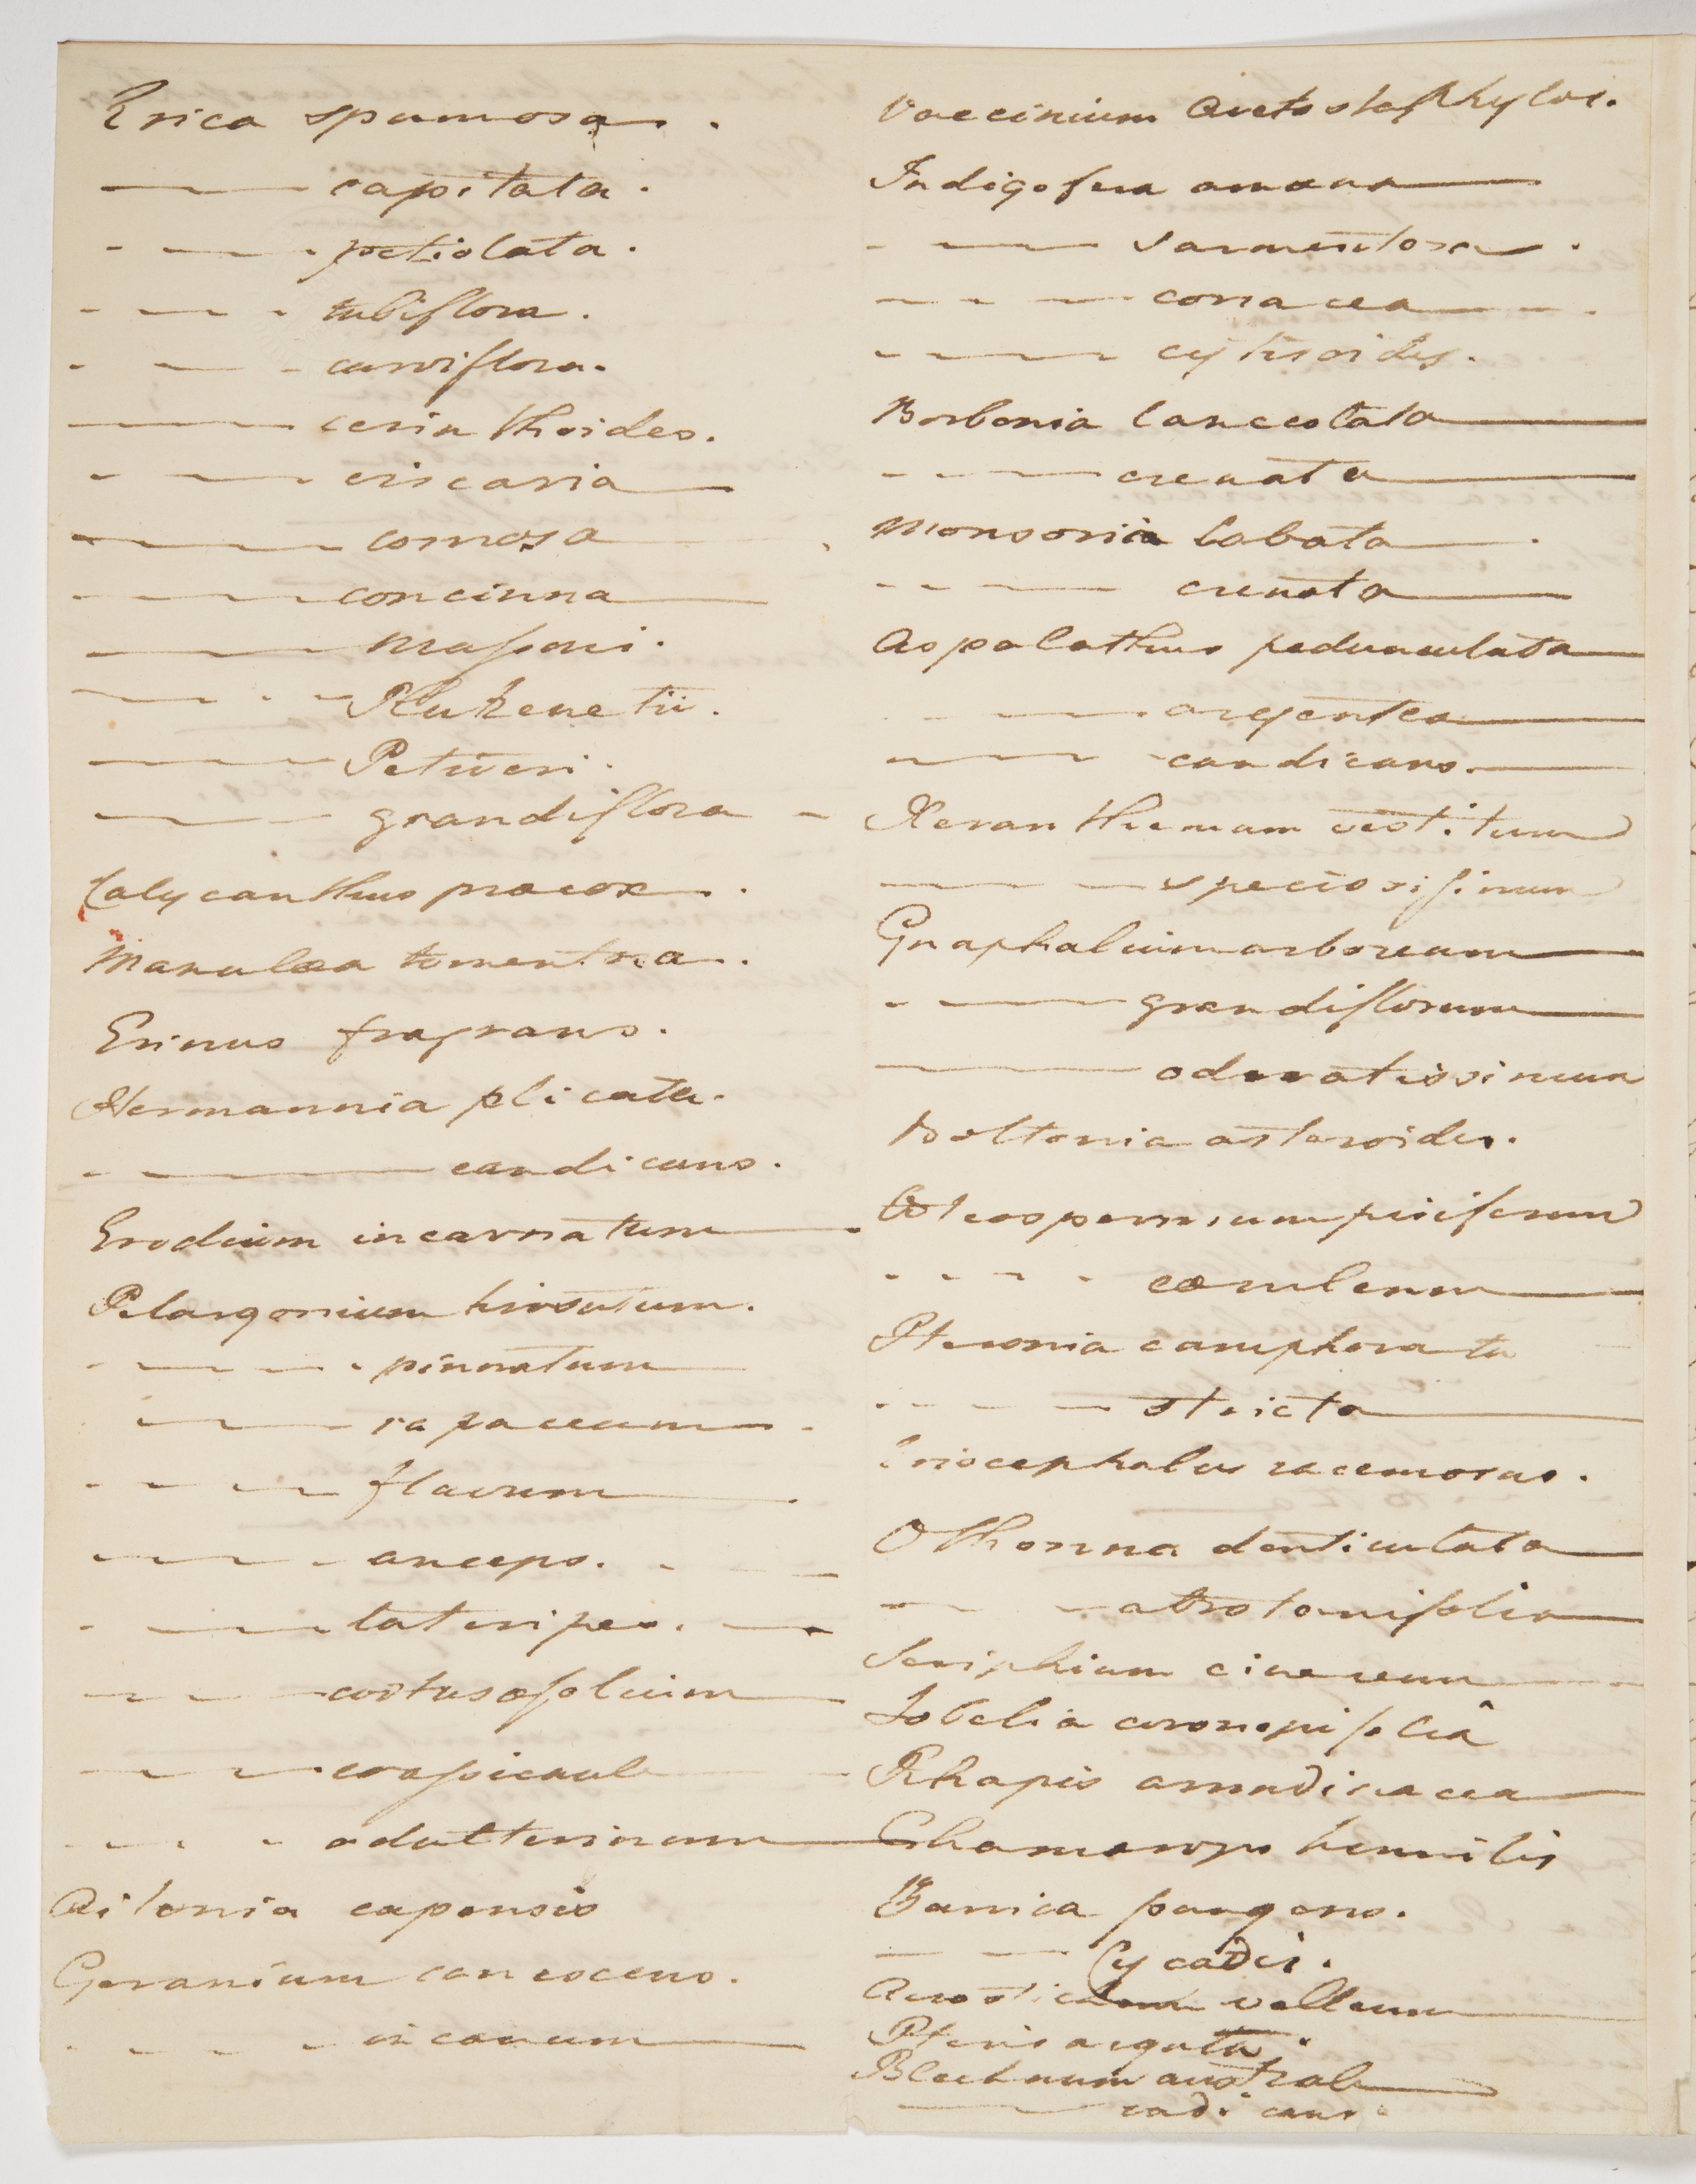 Erica spumosa.
——— capitata.
- — — petiolata.
- — - - tubiflora.
- — - curviflora.
——— cerinthoides.
- — — viscaria —
——— comosa
- — — concinna —
——— Massoni.
— - - — Plukenetii.
——— Petiveri.
——— grandiflora -
Calycanthus præcox.
Manulæa tomentosa.
Erinus fragrans.
Hermannia plicata.
- ——— candicans.
Erodium incarnatum —
Pelargonium hirsutum.
- — — - pinnatum
- — — rapaceum -
- - - — flavum —
- - - - anceps. -
- — — lateripes. —
- - - cortusæfolium —
- - — crassicaule
- - - - adulterinum —
Aitonia capensis
Geranium canescens.
- - - - incanum —
Vaccinium Arctostaphylos.
Indigofera amœna —
- — — sarmentosa.
- - - — coriacea — -.
- - — — cytisoides.
Borbonia lanceolata —
- - — — crenata —
Monsonia lobata — .
- - — crenata —
Aspalathus pedunculata —
- - — - argentea —
- — — candicans. —
Xeranthemum vestitum
— — — speciosissimum
Gnaphalium arboreum —
- — — grandiflorum —
——— odoratissimum
Boltonia asteroides.
Osteospermum pisiferum
- - - - cœruleum —
Pteronia camphorata -
- - - — stricta —
Eriocephalus racemosus.
Othonna denticulata —
— - abrotanifolia —
Seriphium cinereum —
Lobelia coronopifoliâ
Rhapis arundinacea —
Chamærops humilis
Zamia pungens.
— — Cycadis.
Acrostichum velleum —
Pteris arguta.
Blechnum australe —
——— radicans.